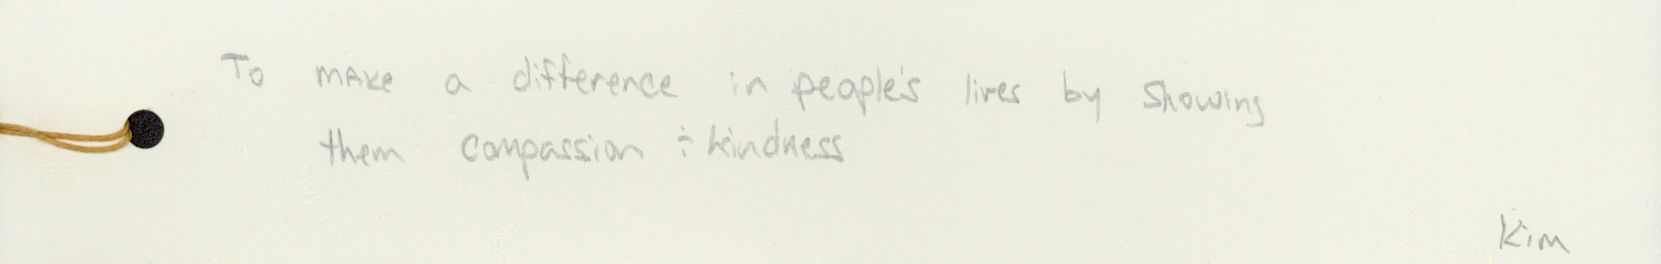 To make a difference in people's lives by showing
them compassion & kindness
Kim